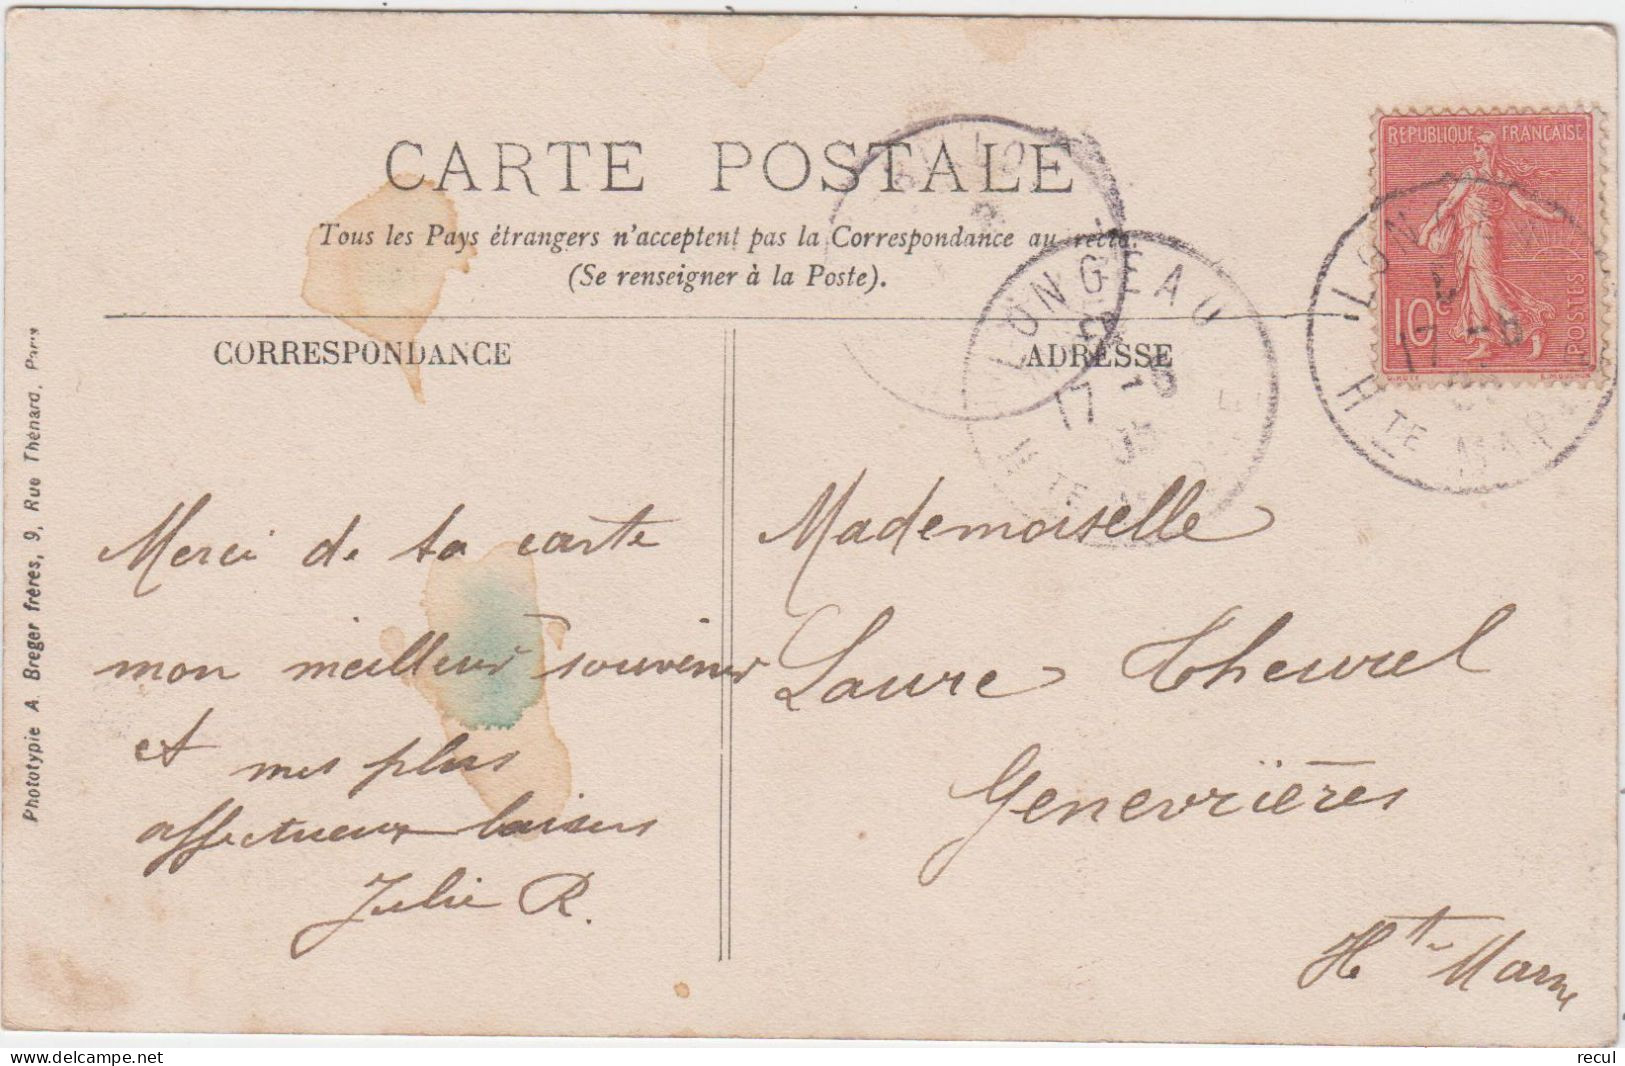 CARTE POSTALE
Tous les Pays étrangers n'acceptent pas la Correspondance au recto.
(Se renseigner à la Poste).
CORRESPONDANCE
ADRESSE
REPUBLIQUE FRANÇAISE
10c
POSTES
LONGEAU
17 - 8
Hte MAR
LONGEAU
17 - 8
05
Hte
Merci de ta carte
mon meilleur souvenir
et mes plus
affectueux baisers
Julie R.
Mademoiselle
Laure Theurel
Genevrières
Hte Marne
Phototypie A. Breger frères, 9, Rue Thénard, Paris
delcampe.net
recul